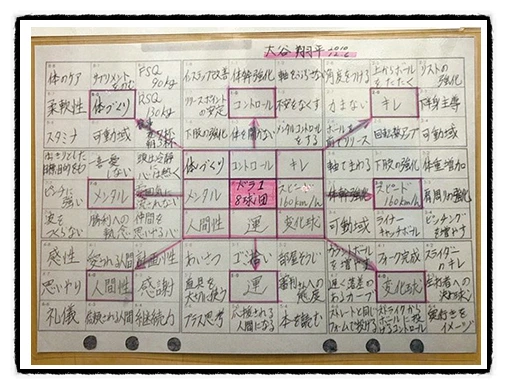 大谷 翔平
体のケア サプリメントをのむ FSQ 90kg インステップ改善 体幹強化 軸をぶらさない 角度をつける 上からボールをたたく リストの強化
柔軟性 体づくり RSQ 130kg リリースポイントの安定 コントロール 不安をなくす 力まない キレ 下半身主導
スタミナ 可動域 下肢の強化 体を開かない メンタルコントロールをする ボールを前でリリース 回転数アップ 可動域
はっきりとした目標目的をもつ 一喜一憂しない 頭は冷静に心は熱く 体づくり コントロール キレ 軸でまわる 下肢の強化 体重増加
ピンチに強い メンタル 雰囲気に流されない メンタル ドラ1 8球団 スピード160km/h 体幹強化 スピード160km/h 肩周りの強化
波をつくらない 勝利への執念 仲間を思いやる心 人間性 運 変化球 可動域 ライナーキャッチボール ピッチングを増やす
感性 愛される人間 計画性 あいさつ ゴミ拾い 部屋そうじ カウントボールを増やす フォーク完成 スライダーのキレ
思いやり 人間性 感謝 道具を大切に扱う 運 審判さんへの態度 遅く落差のあるカーブ 変化球 左打者への決め球
礼儀 信頼される人間 継続力 プラス思考 応援される人間になる 本を読む ストレートと同じフォームで投げる ストライクからボールに投げるコントロール 奥行きをイメージ